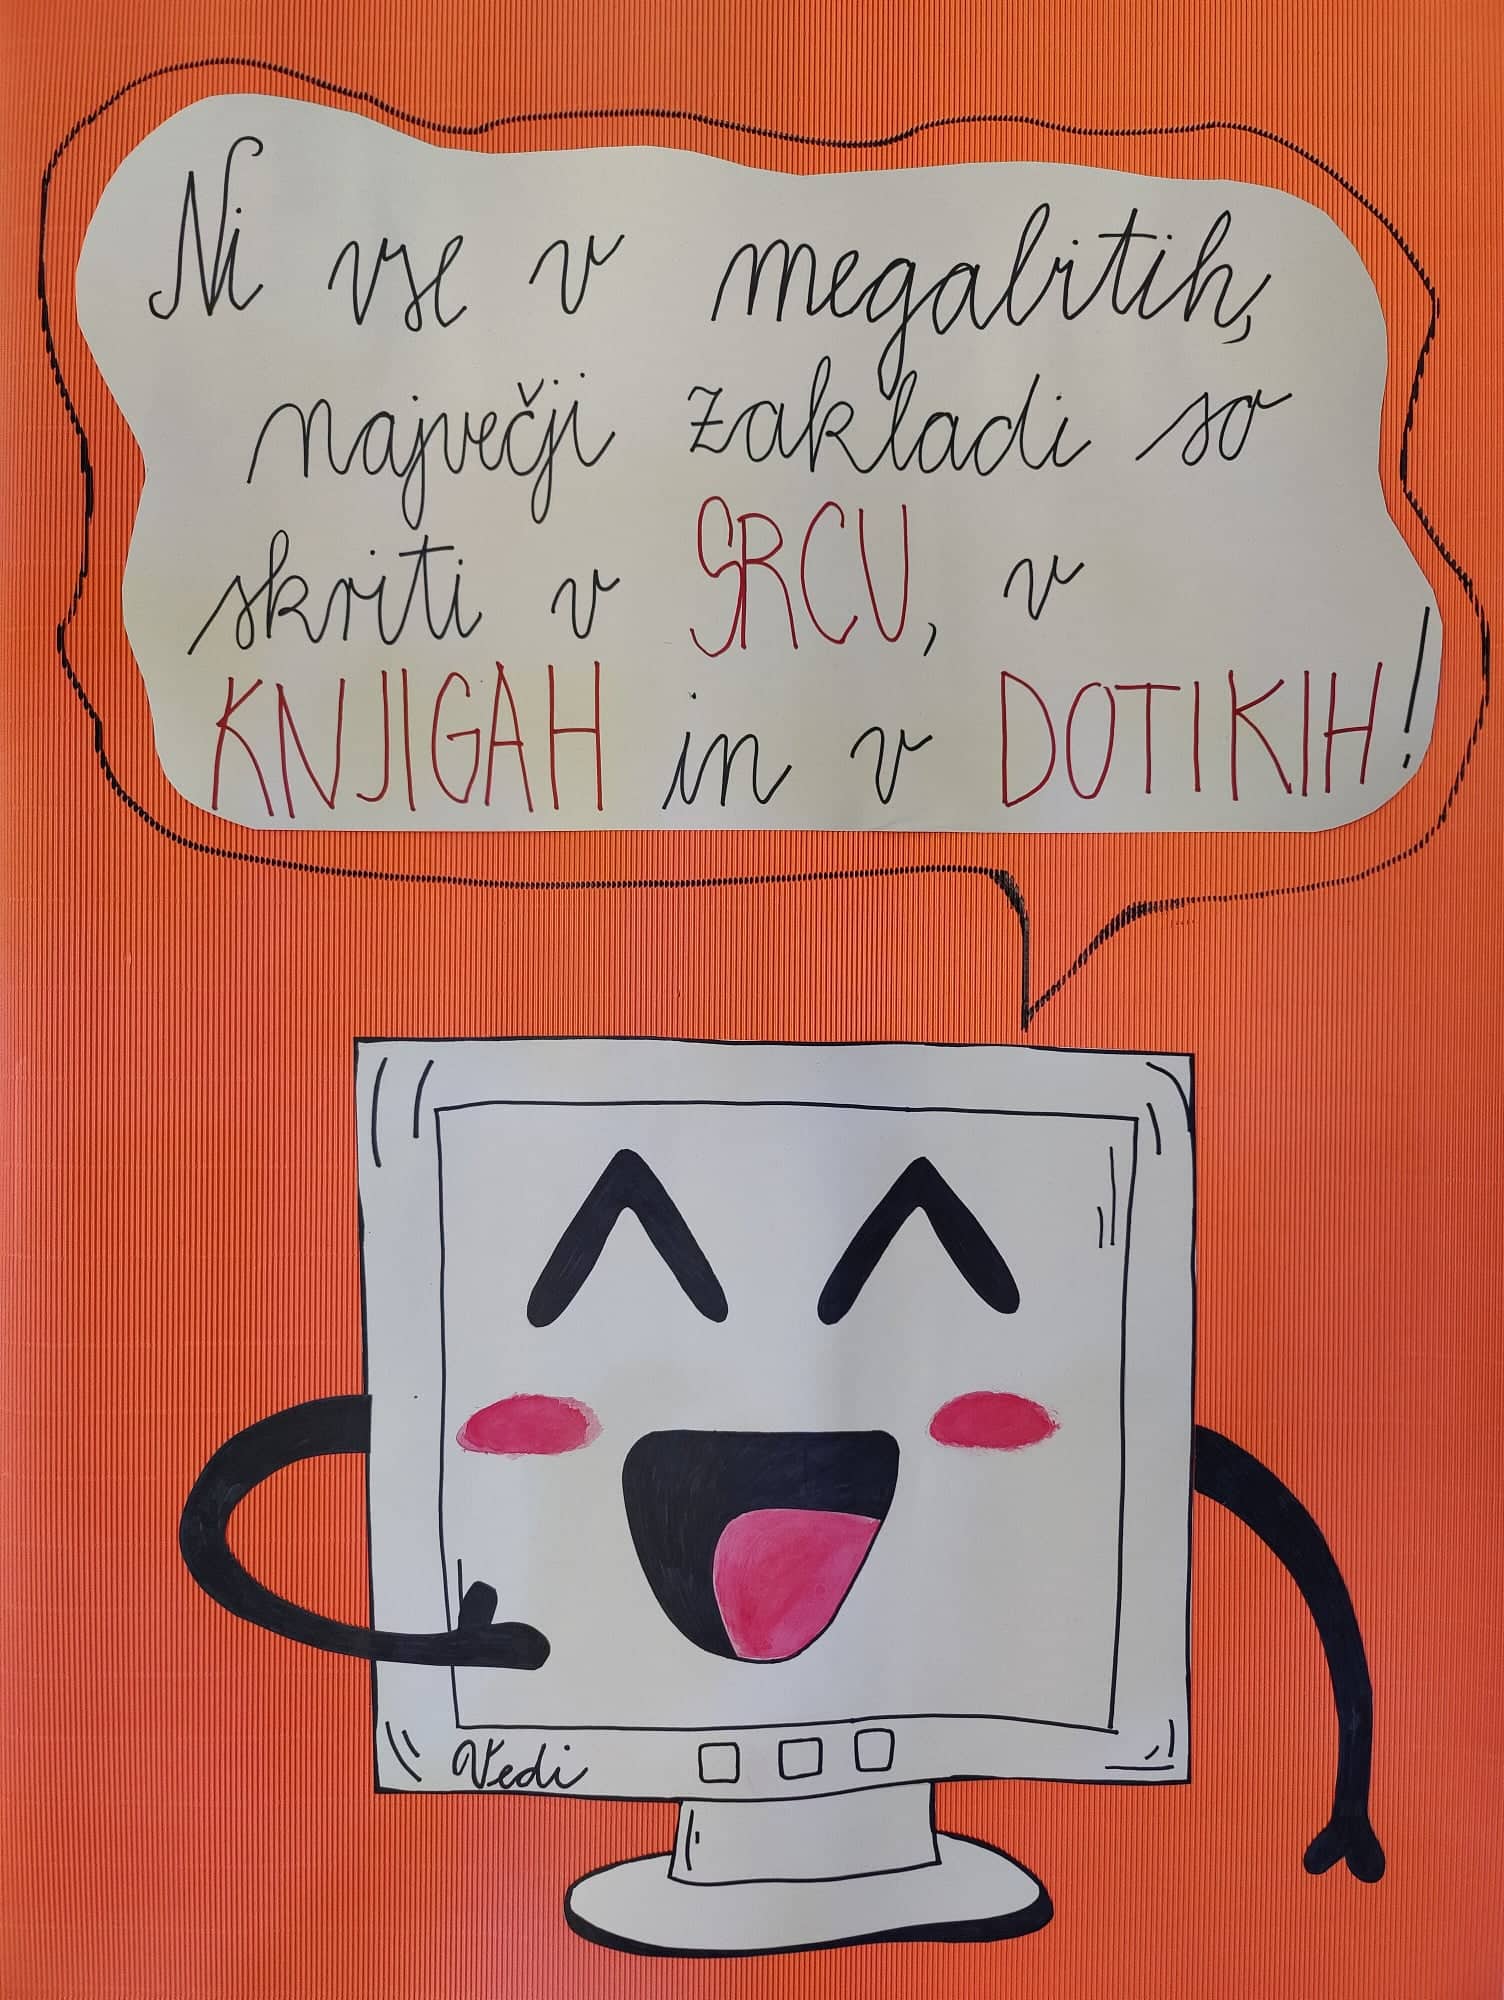 Ni vse v megabitih,
največji zakladi so
skriti v SRCU, v
KNJIGAH in v DOTIKIH!
Vedi